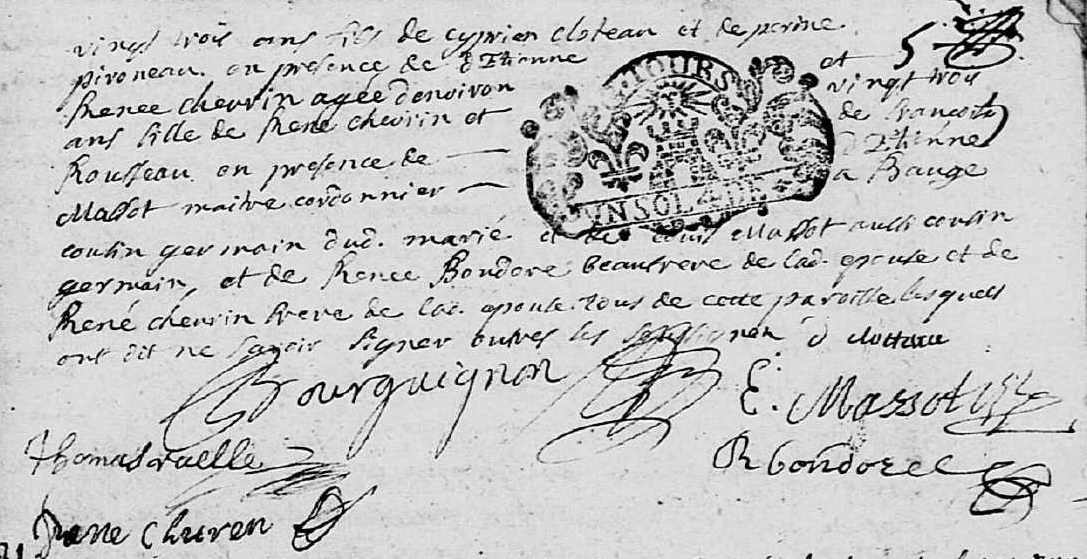 vingt trois ans fils de cyprien cloteau et de perine
5
pironeau. en presence de d'Etienne et
Renee chevrin agée d'environ vingt trois
ans fille de René chevrin et de françoise
Rousseau en presence de — d'Etienne
Massot maitre cordonnier — a Baugé
cousin germain dud. marié et de Massot aussi cousin
germain, et de Renee Bondore beaufrere de lad. epouse et de
René chevrin frere de lad. epouse tous de cette paroisse lesquels
ont dit ne savoir signer outres les soussignez d clotteau
TOURS
UN SOL 4 DE
Bourguignon
E. Massot
Thomas ruelle
R bondore
Rene Churen